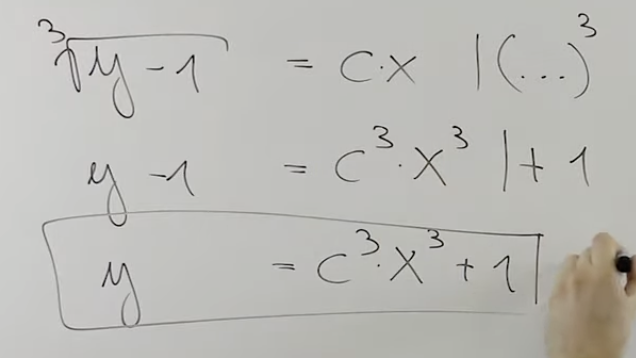 ³√y-1 = c·x |(...)³
y-1 = c³·x³ |+1
y = c³·x³+1